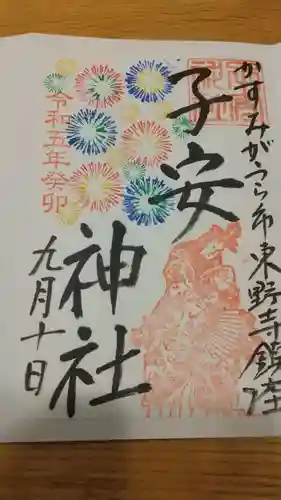 かすみがうら市東野寺鎮座
子安
神社
令和五年癸卯
九月十日